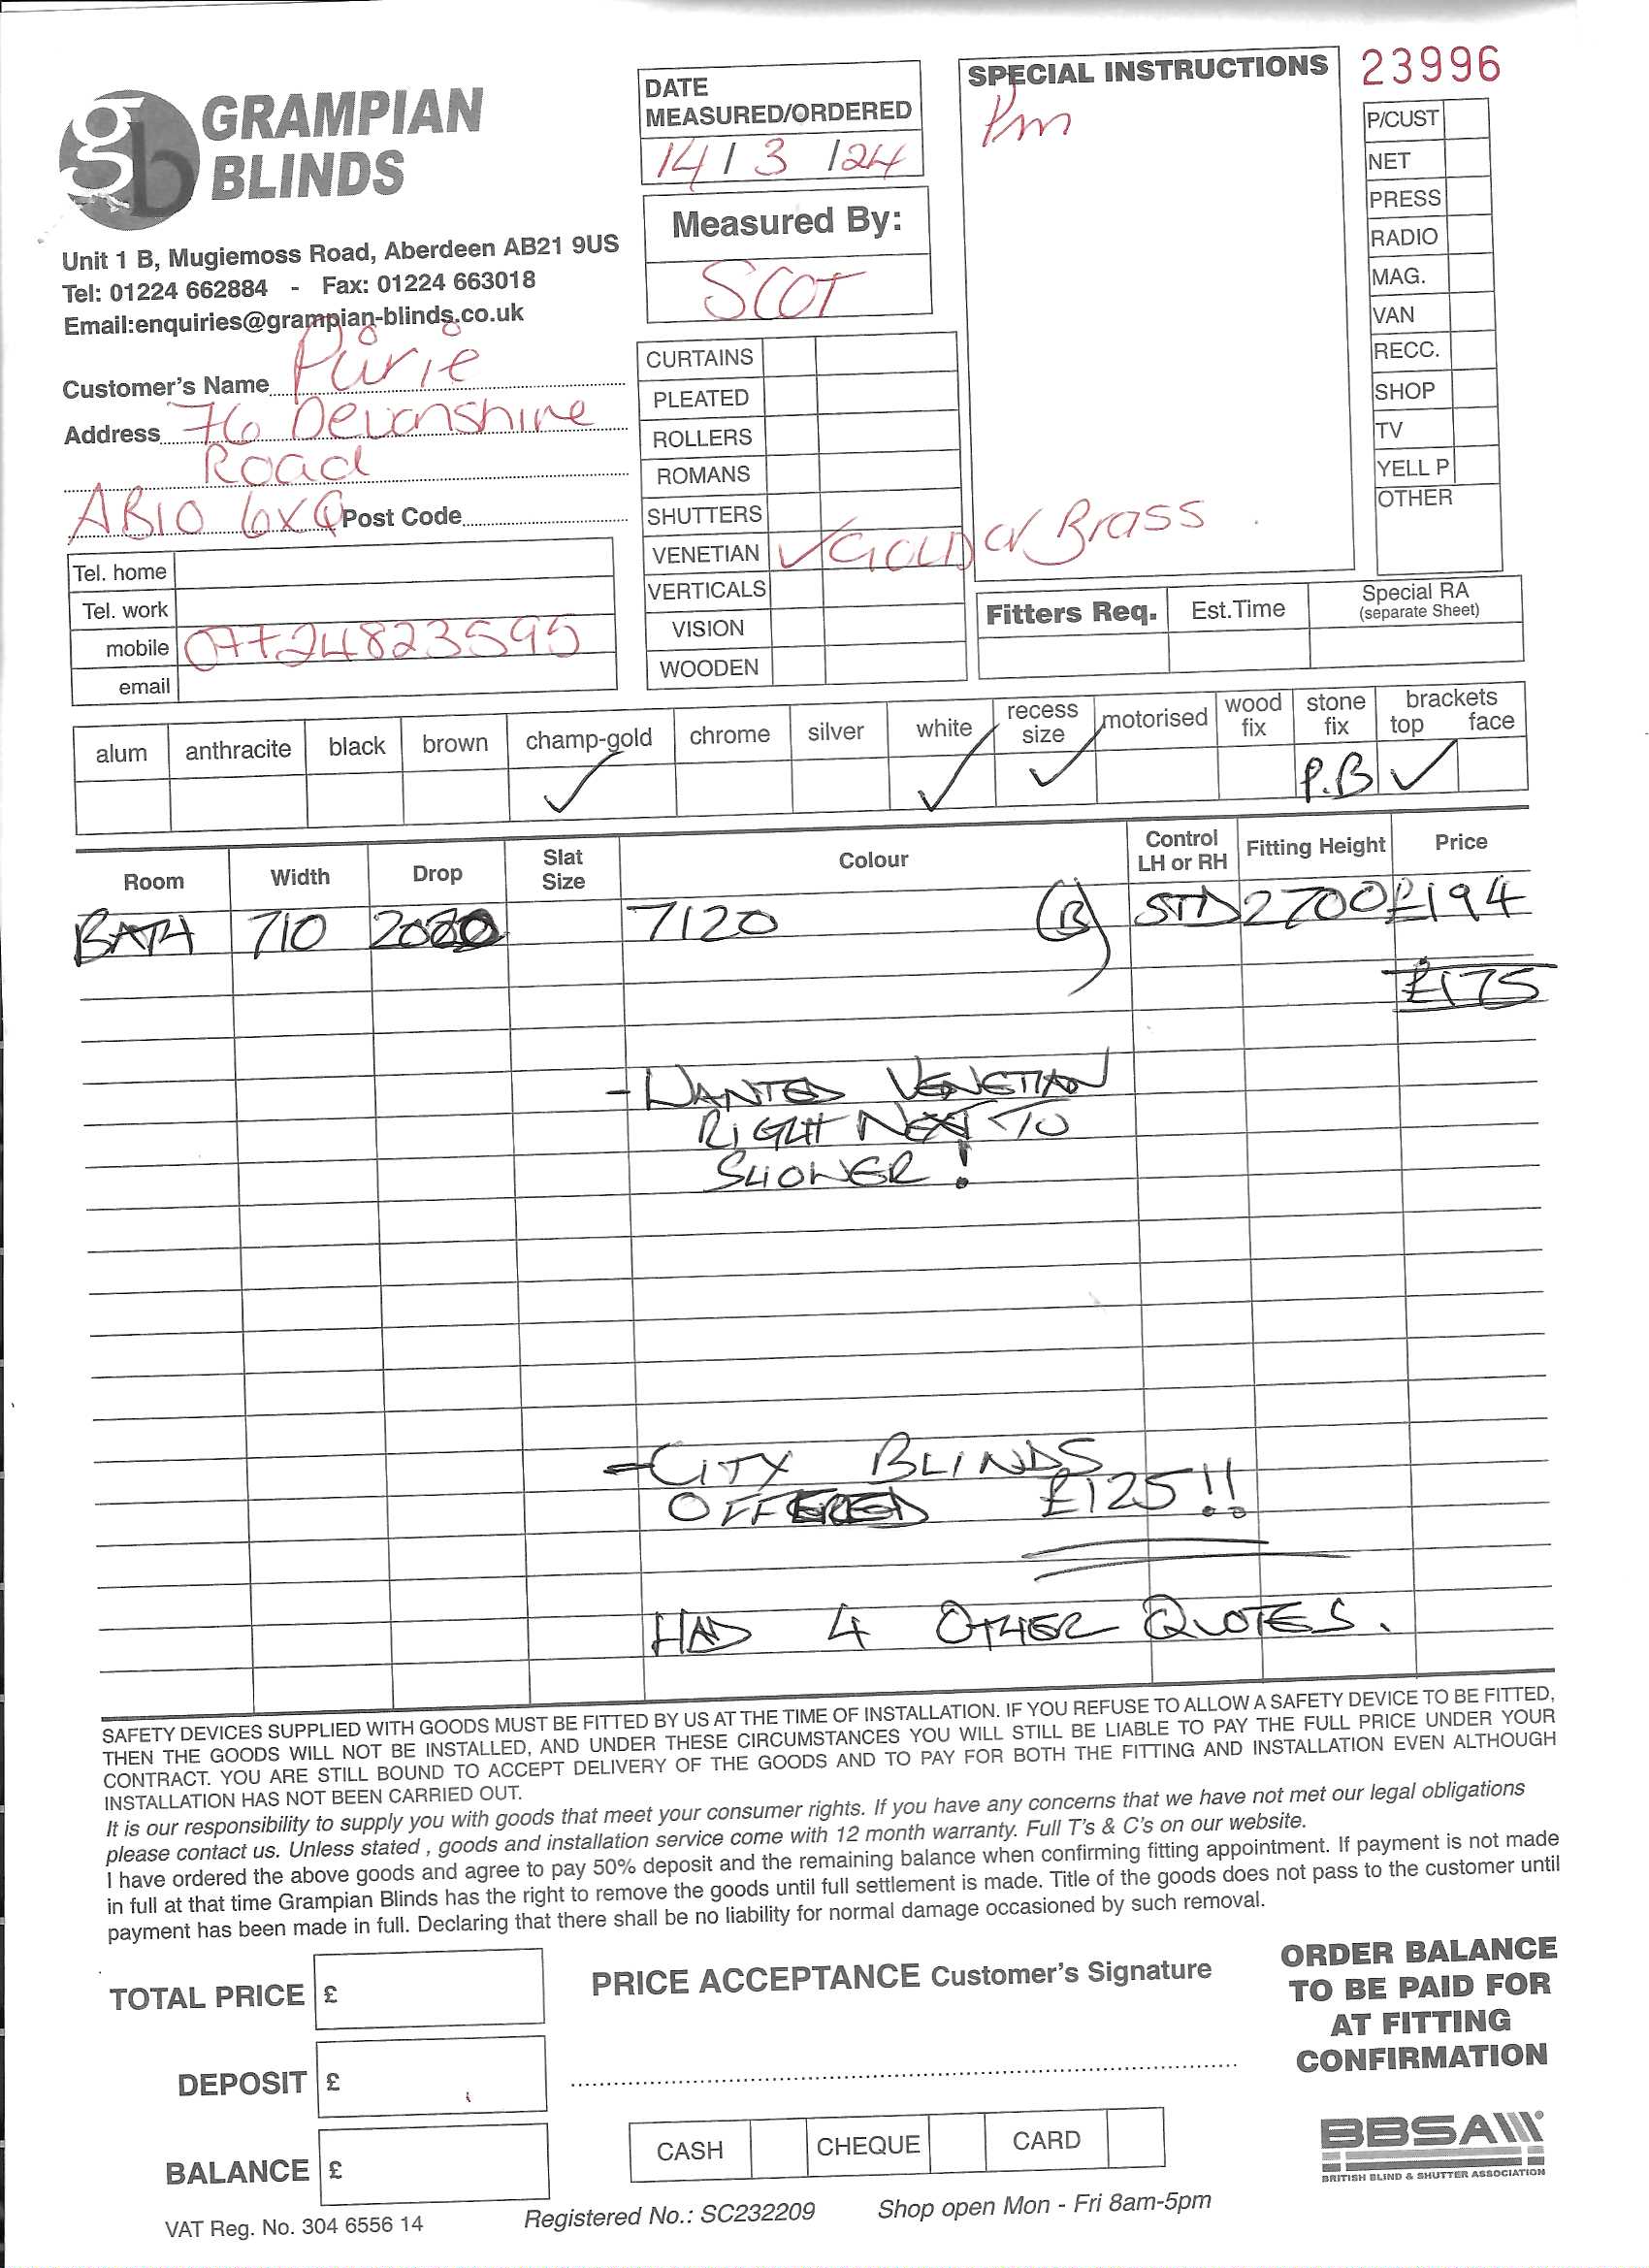 gb GRAMPIAN
BLINDS
Unit 1 B, Mugiemoss Road, Aberdeen AB21 9US
Tel: 01224 662884 - Fax: 01224 663018
Email:enquiries@grampian-blinds.co.uk
Customer's Name Pirie
Address 76 Devonshire
Road
AB10 6XQ Post Code
Tel. home
Tel. work
mobile 07724823595
email
DATE
MEASURED/ORDERED
14 / 3 / 24
Measured By:
SCOT
CURTAINS
PLEATED
ROLLERS
ROMANS
SHUTTERS
VENETIAN ✓ GOLD or Brass.
VERTICALS
VISION
WOODEN
SPECIAL INSTRUCTIONS
Pm
23996
P/CUST
NET
PRESS
RADIO
MAG.
VAN
RECC.
SHOP
TV
YELL P
OTHER
Fitters Req. Est.Time Special RA
(separate Sheet)
alum anthracite black brown champ-gold chrome silver white recess size motorised wood fix stone fix brackets top face
✓ ✓ ✓ P.B ✓
Room Width Drop Slat Size Colour Control LH or RH Fitting Height Price
BATH 710 7120 (B) STD 2700 £194
£175
- WANTED VENETIAN
RIGHT NEXT TO
SHOWER!
- CITY BLINDS
OFFERED £125!!
HAD 4 OTHER QUOTES.
SAFETY DEVICES SUPPLIED WITH GOODS MUST BE FITTED BY US AT THE TIME OF INSTALLATION. IF YOU REFUSE TO ALLOW A SAFETY DEVICE TO BE FITTED,
THEN THE GOODS WILL NOT BE INSTALLED, AND UNDER THESE CIRCUMSTANCES YOU WILL STILL BE LIABLE TO PAY THE FULL PRICE UNDER YOUR
CONTRACT. YOU ARE STILL BOUND TO ACCEPT DELIVERY OF THE GOODS AND TO PAY FOR BOTH THE FITTING AND INSTALLATION EVEN ALTHOUGH
INSTALLATION HAS NOT BEEN CARRIED OUT.
It is our responsibility to supply you with goods that meet your consumer rights. If you have any concerns that we have not met our legal obligations
please contact us. Unless stated , goods and installation service come with 12 month warranty. Full T's & C's on our website.
I have ordered the above goods and agree to pay 50% deposit and the remaining balance when confirming fitting appointment. If payment is not made
in full at that time Grampian Blinds has the right to remove the goods until full settlement is made. Title of the goods does not pass to the customer until
payment has been made in full. Declaring that there shall be no liability for normal damage occasioned by such removal.
TOTAL PRICE £
DEPOSIT £
BALANCE £
PRICE ACCEPTANCE Customer's Signature
CASH CHEQUE CARD
ORDER BALANCE
TO BE PAID FOR
AT FITTING
CONFIRMATION
BBSA
BRITISH BLIND & SHUTTER ASSOCIATION
VAT Reg. No. 304 6556 14 Registered No.: SC232209 Shop open Mon - Fri 8am-5pm